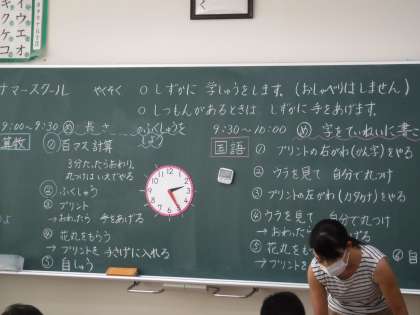 イウエオ
キクケコ
ナマースクール
やくそく
○ しずかに 学しゅうをします。(おしゃべりはしません)
○ しつもんがあるときは しずかに手をあげます。
9:00～9:30
め 長さ のふくしゅうを
しよう
算数
① 百マス計算
3分たったらおわり。
丸つけは いえでやる
② ふくしゅう
③ プリント
→おわったら 手をあげる
④ 花丸をもらう
→プリントを 手さげに入れる
⑤ 自しゅう
9:30～10:00
め 字をていねいに書こ
国語
① プリントの右がわ(かん字)をやる
② ウラを見て 自分で丸つけ
③ プリントの左がわ(カタカナ)をやる
④ ウラを見て 自分で丸つけ
→おわったら
げる
⑤ 花丸をも
→プリントを
る
⑥ 自